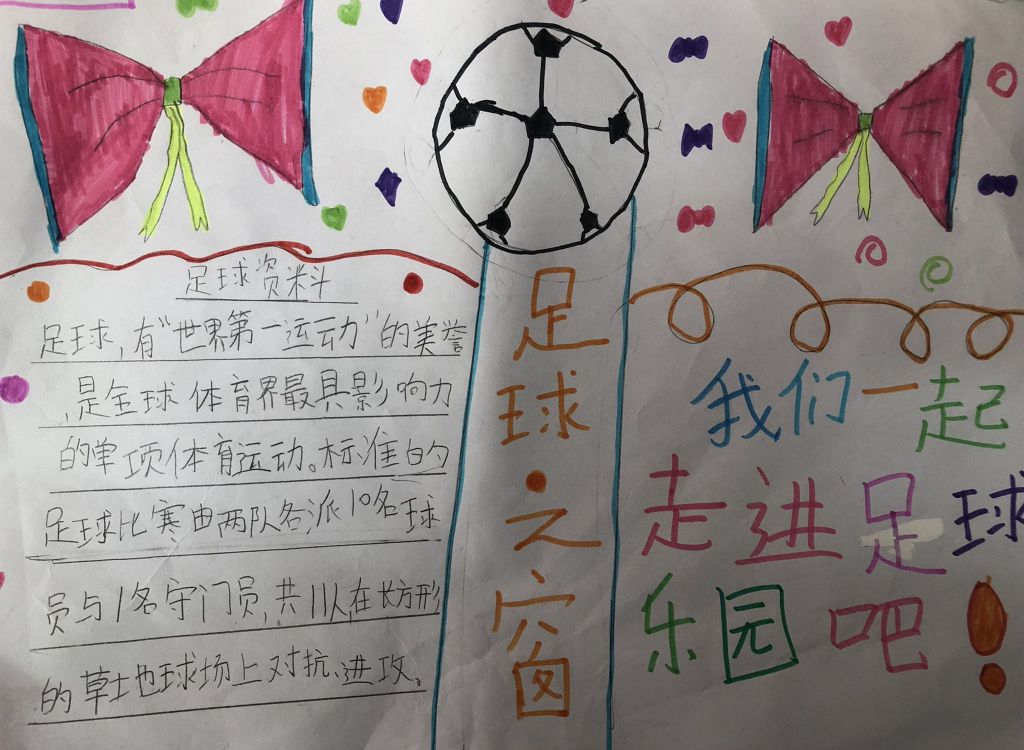 足球资料
足球,有“世界第一运动”的美誉
,是全球体育界最具影响力
的单项体育运动。标准的
足球比赛由两队各派10名球
员与1名守门员,共11人在长方形
的草土地球场上对抗、进攻。
足球·之窗
我们一起
走进足球
乐园吧!